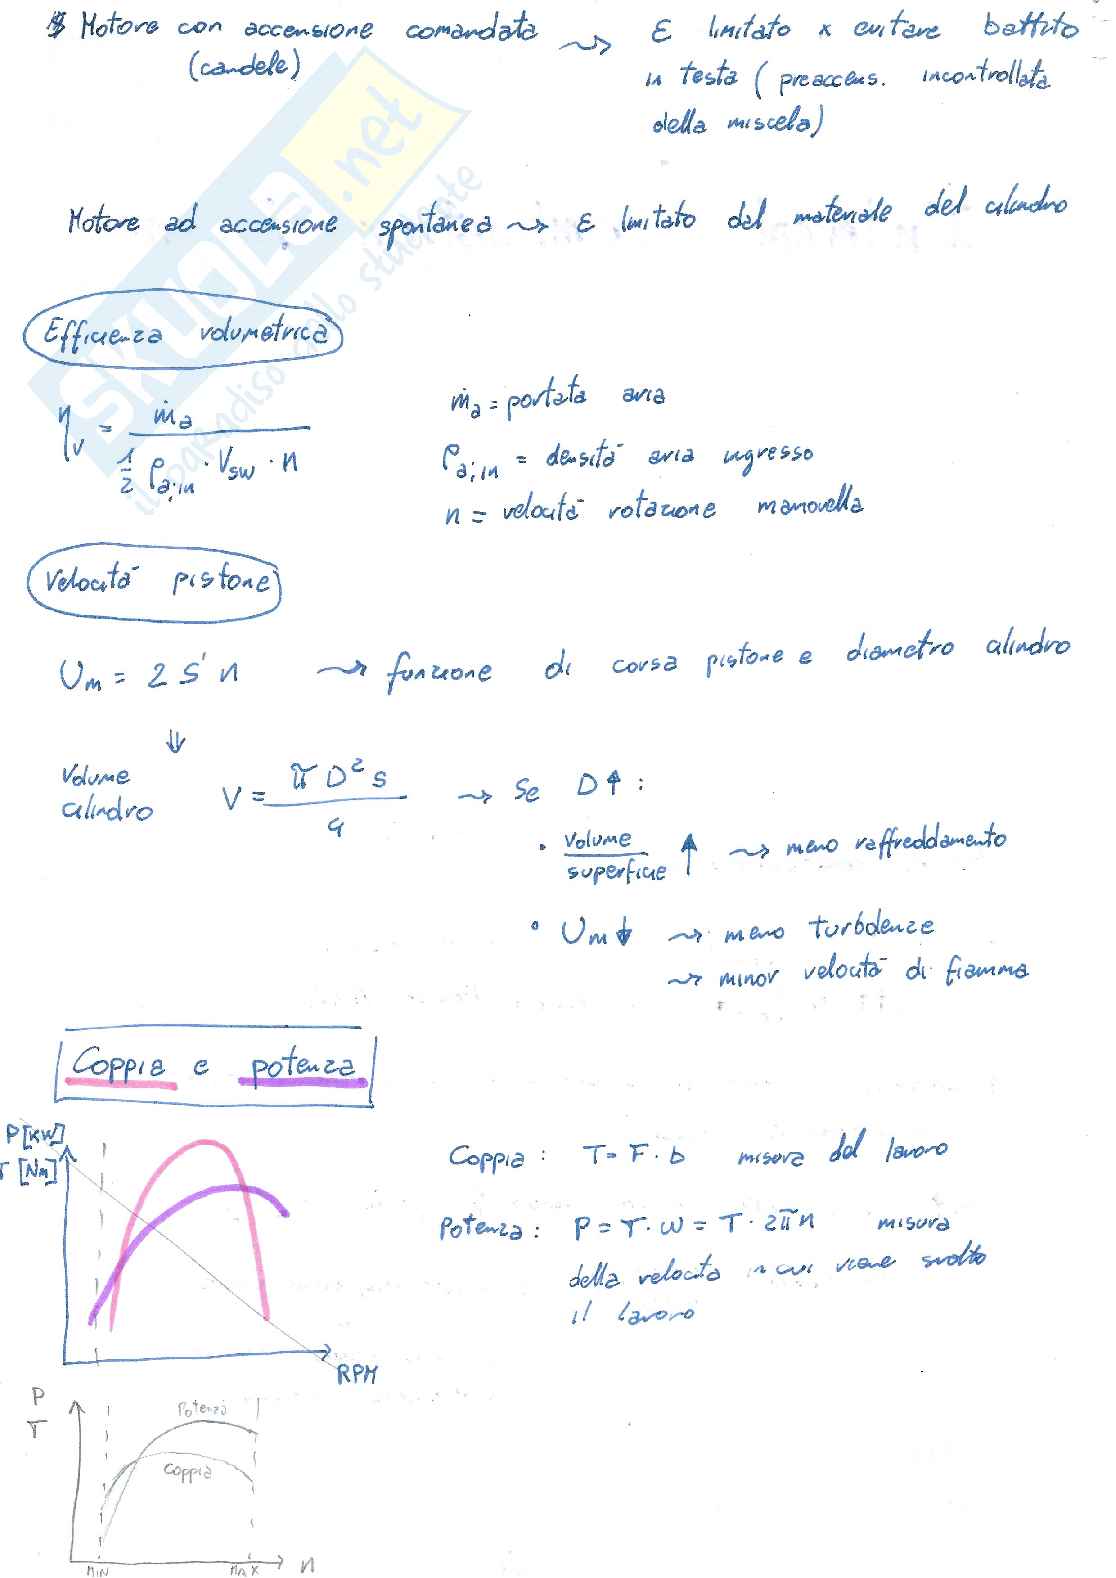 Motore con accensione comandata ⇝ ε limitato x evitare battito
(candele) in testa (preaccens. incontrollata
della miscela)
Motore ad accensione spontanea ⇝ ε limitato dal materiale del cilindro
Efficienza volumetrica
η_v = ṁ_a / (1/2 ρ_a,in · V_sw · n)
ṁ_a = portata aria
ρ_a;in = densità aria ingresso
n = velocità rotazione manovella
Velocità pistone
U_m = 2 S n ⇝ funzione di corsa pistone e diametro cilindro
⇓
Volume
cilindro V = π D² s / 4 ⇝ Se D↑ :
• volume / superficie ↑ ⇝ meno raffreddamento
• U_m ↓ ⇝ meno turbolenze
⇝ minor velocità di fiamma
Coppia e potenza
P [KW]
T [Nm]
RPM
Coppia : T = F · b misura del lavoro
Potenza : P = T · w = T · 2πn misura
della velocità in cui viene svolto
il lavoro
P
T
Potenza
Coppia
MIN MAX n
SKUOLA.net
il paradiso dello studente